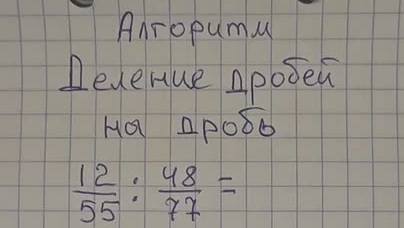 Алгоритм
Деление дробей
на дробь
12/55 : 48/77 =